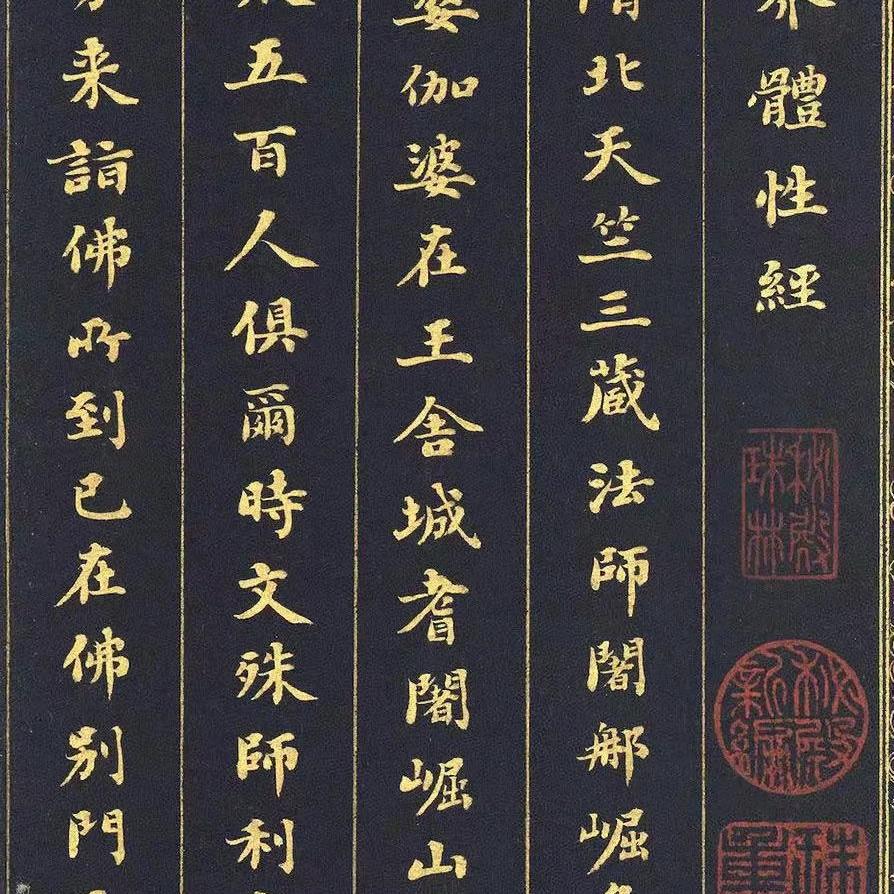 體性經
隋北天竺三藏法師闍那崛
婆伽婆在王舍城耆闍崛山
五百人俱爾時文殊師利
来詣佛所到已在佛別門
秘殿珠林
秘殿新編